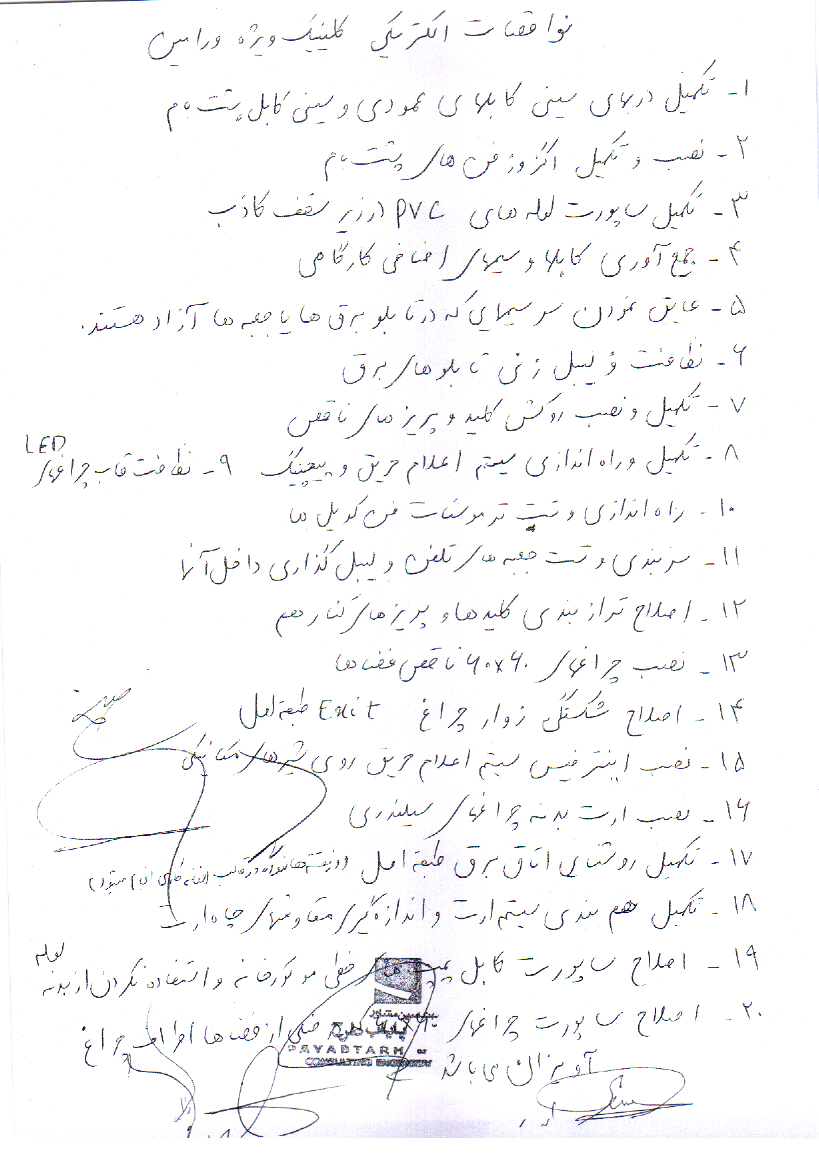 نواقصات الکتریکی کلینیک ویژه ورامین
۱- تکمیل دربهای سینی کابلهای عمودی و سینی کابل پشت بام
۲- نصب و تکمیل اگزوز فن های پشت بام
۳- تکمیل ساپورت لوله های PVC در زیر سقف کاذب
۴- جمع آوری کابلها و سیمهای اضافی کارگاهی
۵- عایق نمودن سر سیمهایی که در تابلو برق ها یا جعبه ها آزاد هستند.
۶- نظافت و لیبل زنی تابلوهای برق
۷- تکمیل و نصب روکش کلید و پریزهای ناقص
۸- تکمیل و راه اندازی سیستم اعلام حریق و پیجینگ ۹- نظافت قاب چراغهای LED
۱۰- راه اندازی و تست ترموستات فن کویل ها
۱۱- سربندی و تست جعبه های تلفن و لیبل گذاری داخل آنها
۱۲- اصلاح تراز بندی کلیدها و پریزهای کنار هم
۱۳- نصب چراغهای ۶۰x۶۰ ناقص فضاها
۱۴- اصلاح شکستگی نوار چراغ Exit طبقه اول
۱۵- نصب اینترفیس سیستم اعلام حریق روی شیرهای مکانیکی
۱۶- نصب ارت بدنه چراغهای سیلندری
۱۷- تکمیل روشنایی اتاق برق طبقه اول
۱۸- تکمیل هم بندی سیستم ارت و اندازه گیری مقاومتهای چاه ارت
۱۹- اصلاح ساپورت کابل پمپ های خطی موتورخانه و استفاده نکردن از بدنه لوله
۲۰- اصلاح ساپورت چراغهای از فضاها اطراف چراغ
آویزان می باشد
مهندسین مشاور
پایاب طرح
PAYABTARH
CONSULTING ENGINEERS